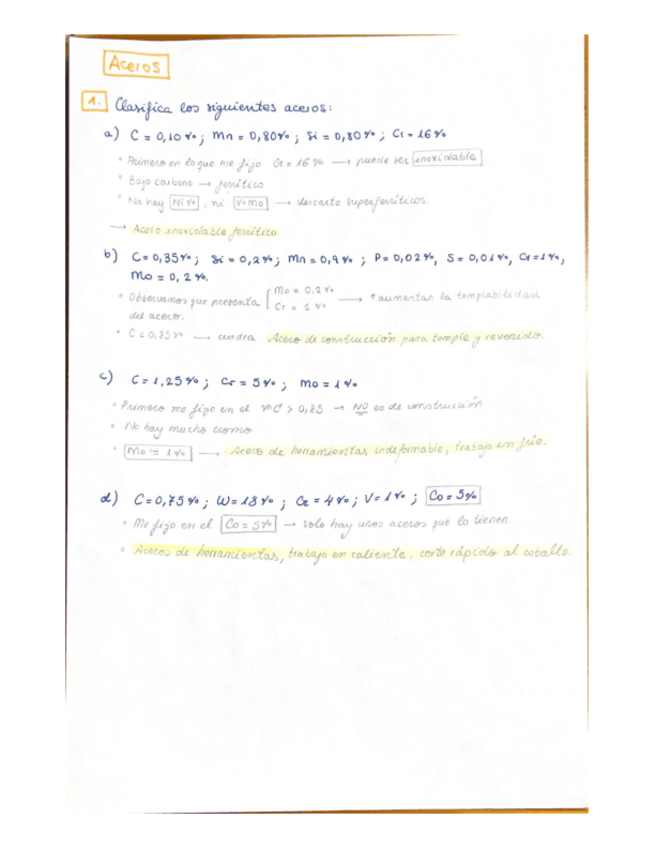 Aceros
1. Clasifica los siguientes aceros:
a) C = 0,10 %; Mn = 0,80%; Si = 0,80 %; Cr = 16 %
• Primero en lo que me fijo Cr = 16 % → puede ser inoxidable
• Bajo carbono → ferrítico
• No hay Ni %, ni %Mo → descarto superferríticos.
→ Acero inoxidable ferrítico
b) C = 0,35%; Si = 0,2%; Mn = 0,9 %; P = 0,02 %, S = 0,01 %, Cr = 1 %,
Mo = 0,2 %.
• Observamos que presenta Mo = 0,2 % → ↑ aumentan la templabilidad
Cr = 1 %
del acero.
• → cuadra Acero de construcción para temple y revenido.
c) C = 1,25 %; Cr = 5 %; Mo = 1 %
• Primero me fijo en el %C > 0,85 → NO es de construcción
• No hay mucho cromo
• Mo = 1 % → Acero de herramientas indeformable, trabajo en frío.
d) C = 0,75 %; W = 18 %; Cr = 4 %; V = 1 %; Co = 5%
• Me fijo en el Co = 5% → solo hay unos aceros que lo tienen
• Aceros de herramientas, trabajo en caliente, corte rápido al cobalto.